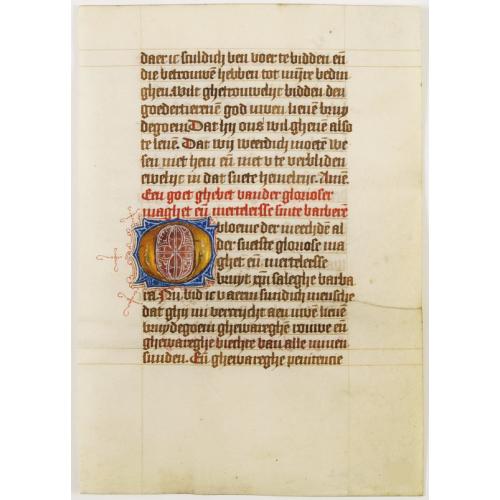 daer ic sculdich ben voer te bidden eñ
die betrouwẽ hebben tot mijre bedin
ghen. Wilt ghetrouwelijc bidden den
goedertierenẽ god uwen lieuẽ bruy
degoem. Dat hij ons wil gheuẽ also
te leuẽ. Dat wij weerdich moetẽ we
sen met hem eñ met v te verbliden
ewelijc in dat suete hemelrijc. Amẽ.
Een goet ghebet vander glorioser
maghet eñ mertelersse sinte barberẽ
O bloeme der meechdẽ al
der sueste gloriose ma
ghet eñ mertelersse
bruyt xp̃i saleghe barba
ra. Nu bid ic v aerm sundich mensche
dat ghij mi verwerft aen uwẽ lieuẽ
bruydegoem ghewareghe rouwe eñ
ghewareghe biechte van alle minen
sunden. Eñ ghewareghe penitencie